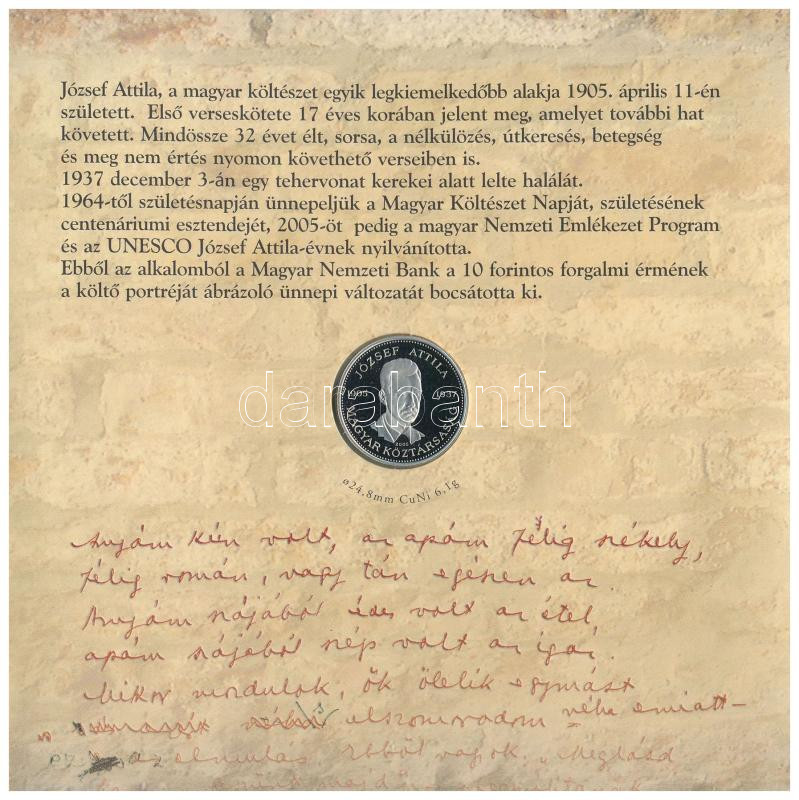 József Attila, a magyar költészet egyik legkiemelkedőbb alakja 1905. április 11-én
született. Első verseskötete 17 éves korában jelent meg, amelyet további hat
követett. Mindössze 32 évet élt, sorsa, a nélkülözés, útkeresés, betegség
és meg nem értés nyomon követhető verseiben is.
1937 december 3-án egy tehervonat kerekei alatt lelte halálát.
1964-től születésnapján ünnepeljük a Magyar Költészet Napját, születésének
centenáriumi esztendejét, 2005-öt pedig a magyar Nemzeti Emlékezet Program
és az UNESCO József Attila-évnek nyilvánította.
Ebből az alkalomból a Magyar Nemzeti Bank a 10 forintos forgalmi érmének
a költő portréját ábrázoló ünnepi változatát bocsátotta ki.
JÓZSEF ATTILA
1905 1937
darabanth
2005
MAGYAR KÖZTÁRSASÁG
ø24,8mm CuNi 6,1g
Anyám kún volt, az apám félig székely,
félig román, vagy tán egészen az.
Anyám szájából édes volt az étel,
apám szájából szép volt az igaz.
Mikor mozdulok, ők ölelik egymást
elszomorodom néha emiatt –
az elmulás. Ebből vagyok. „Meglásd